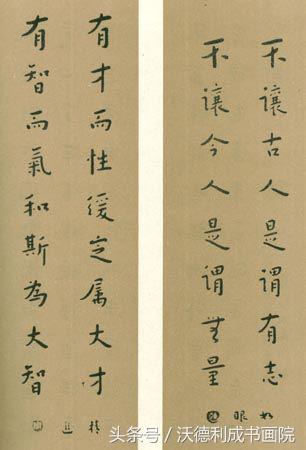 不讓古人是謂有志
如
不讓今人是謂無量
眼
有才而性緩定属大才
有智而氣和斯為大智
頭条号 / 沃德利成书画院